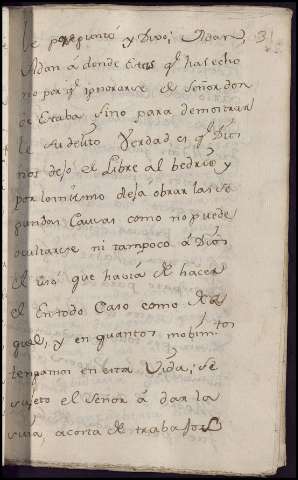 le preguntó y Dixo; Adan, 3
Adan á donde estas q.e has echo
no por q.e ignorarse el Señor don
de Estaba sino para demostrar
le su delito Verdad es q.e Dios
nos dejo el Libre al bedrio y
por lo mismo deja obrar las se
gundas Causas como no puede
ocultarse ni tampoco á Dios
el uso que havia de hacer
el En todo Caso como Ra
qual, y en quantos mobim.tos
tengamos en esta Vida, se
sujeto el Señor á dar la
suia, acosta de trabajos